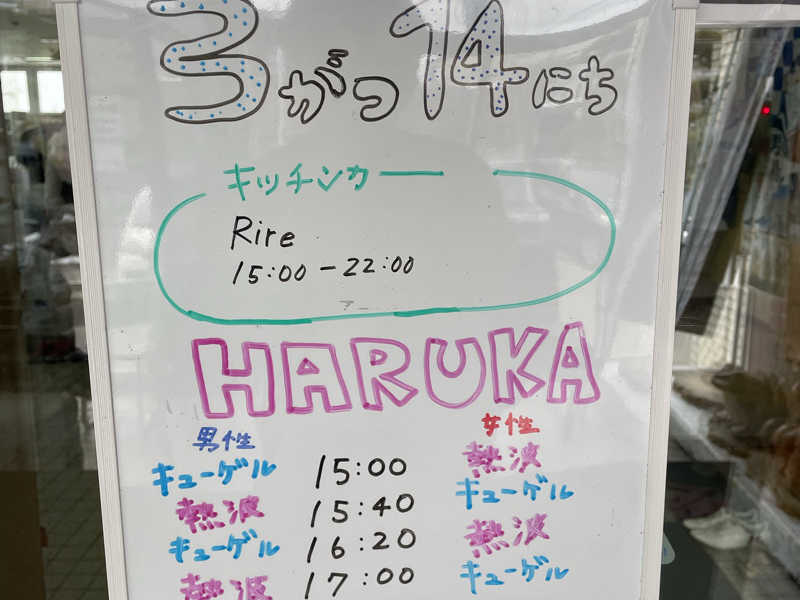 3がつ14にち
キッチンカー
Rire
15:00-22:00
HARUKA
男性 女性
キューゲル 15:00 熱波
熱波 15:40 キューゲル
キューゲル 16:20 熱波
熱波 17:00 キューゲル